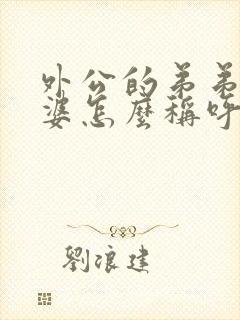 外公的弟弟
婆怎麼稱呼
劉浪建